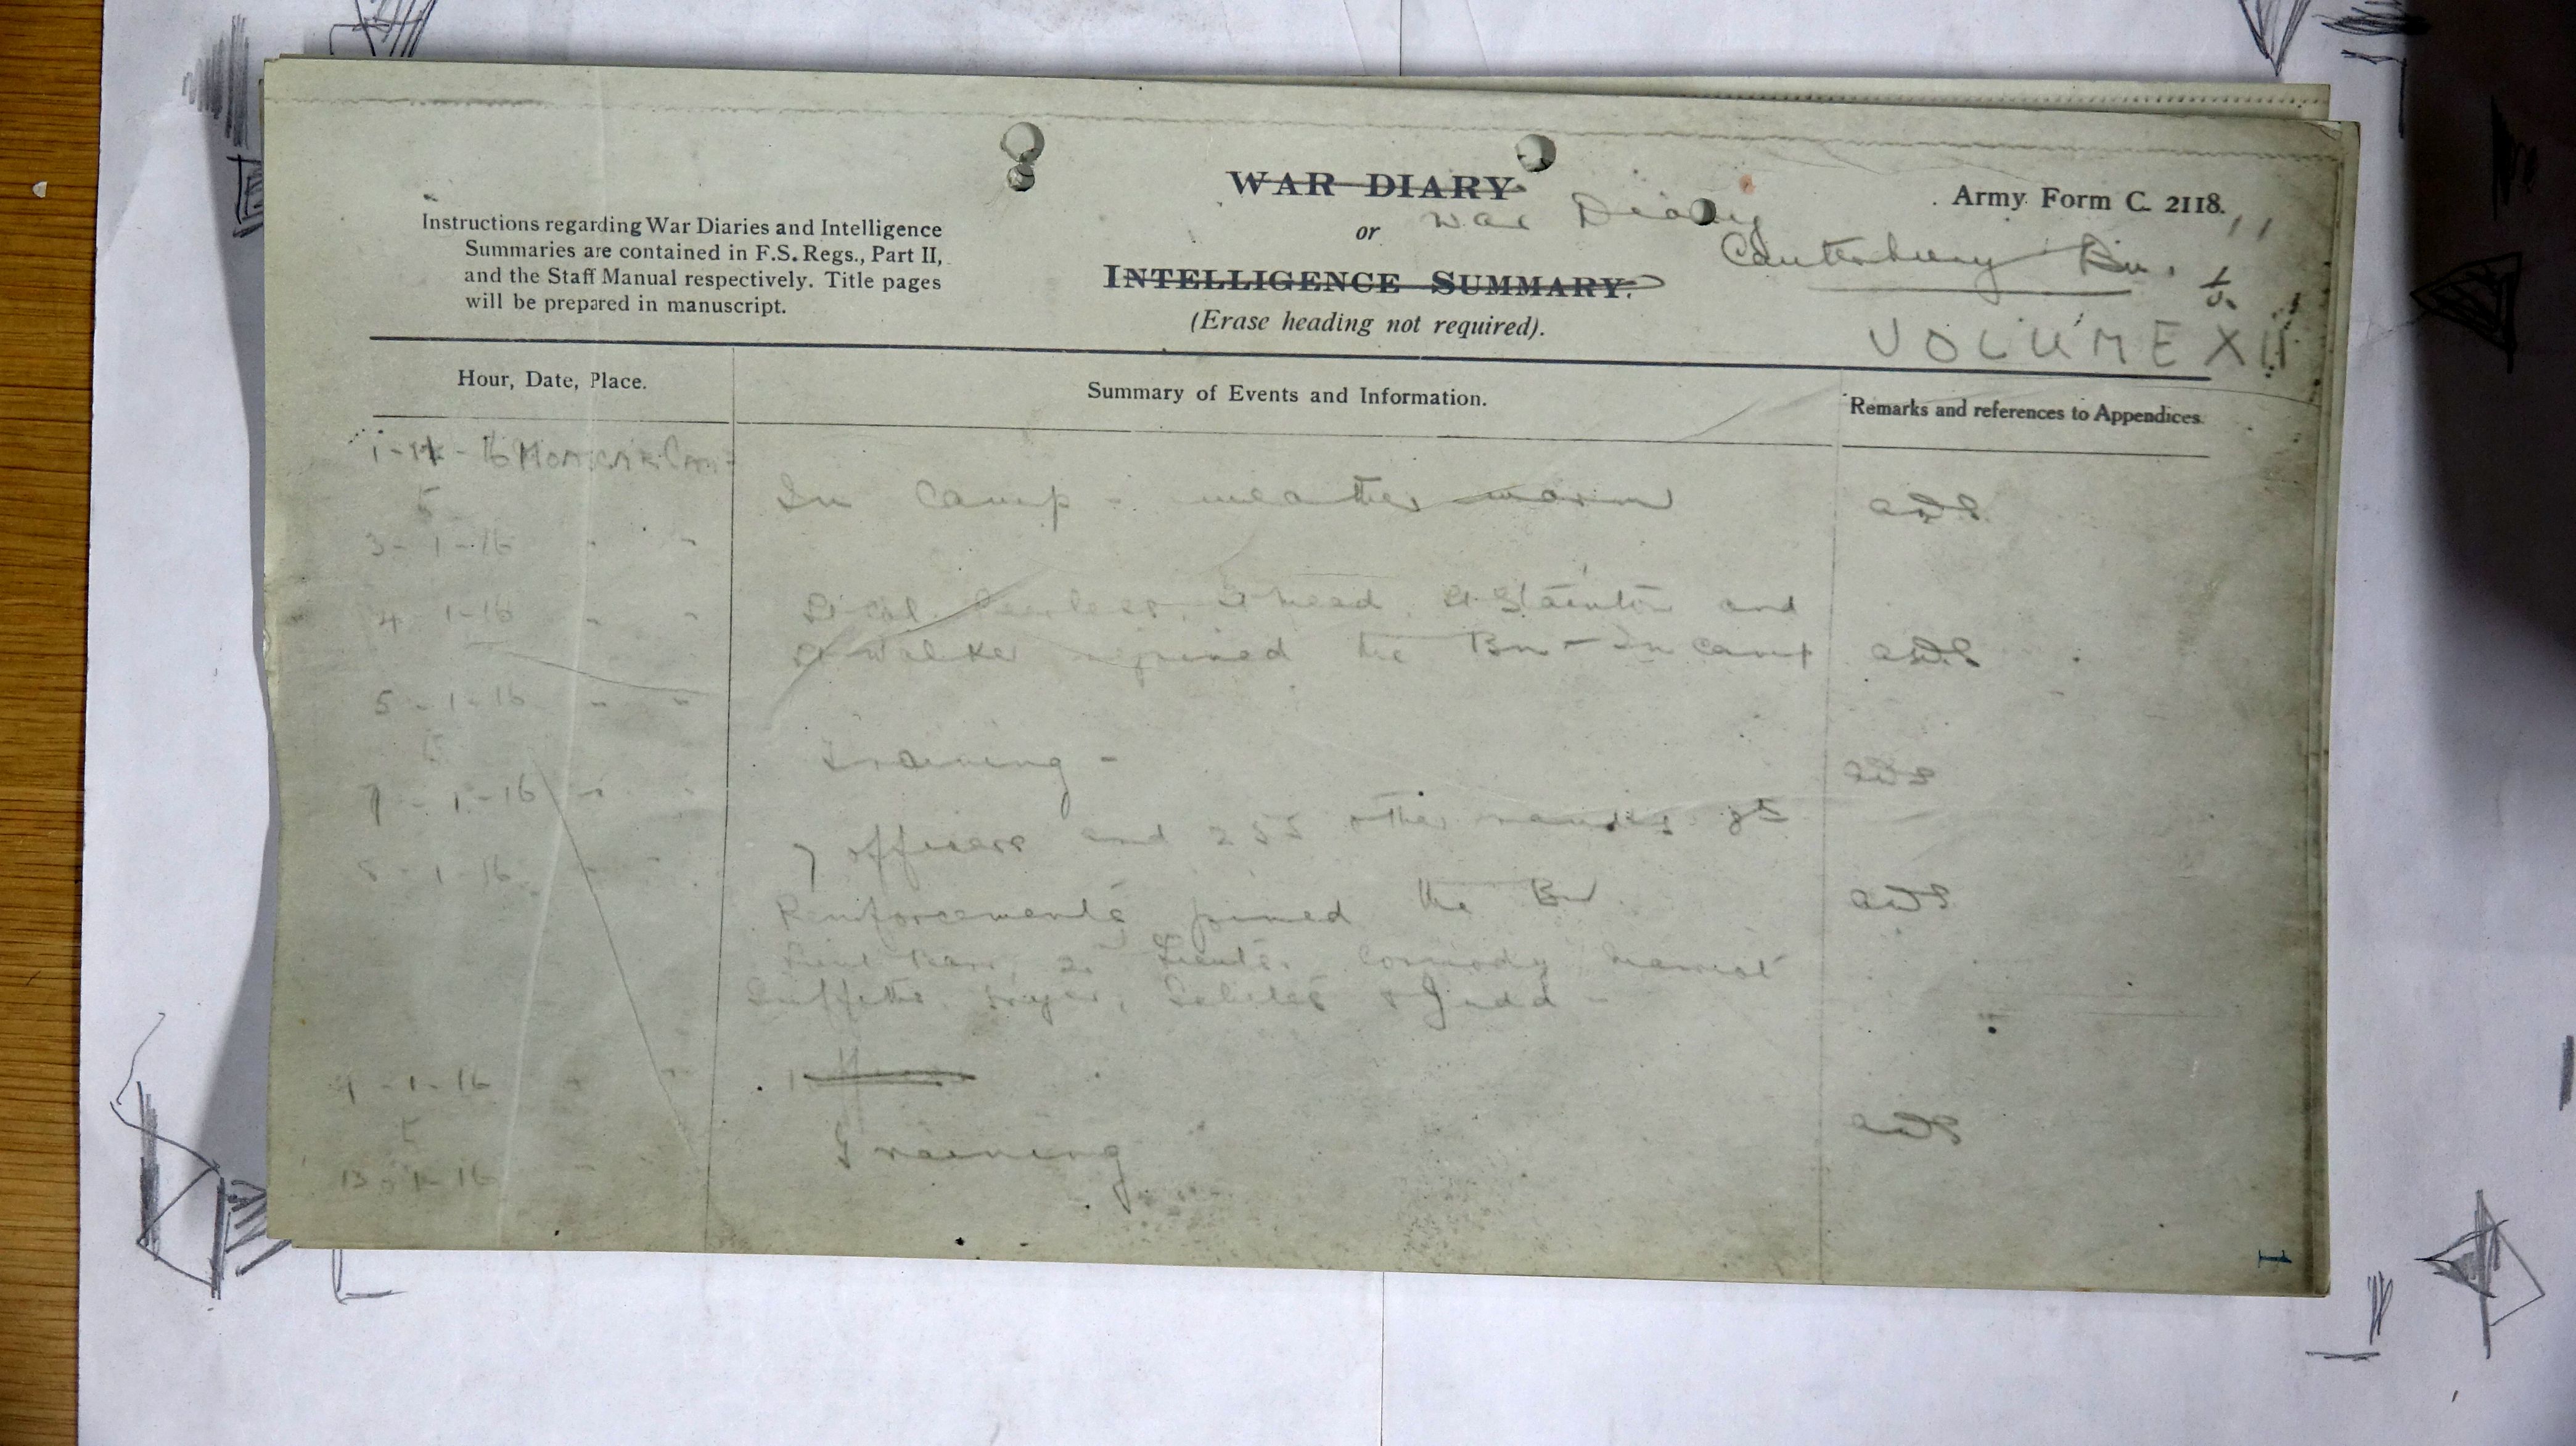 WAR DIARY
or War Diary
INTELLIGENCE SUMMARY.
(Erase heading not required).
Instructions regarding War Diaries and Intelligence
Summaries are contained in F.S. Regs., Part II,
and the Staff Manual respectively. Title pages
will be prepared in manuscript.
Army Form C. 2118.
Canterbury Bn.
VOLUME XII
Hour, Date, Place.
Summary of Events and Information.
Remarks and references to Appendices.
1-1-16
In Camp - weather warm
3-1-16 " "
4-1-16 " " Lt Col. Lt Mead, Lt Stainton and
Lt Walker rejoined the Bn - In Camp
5-1-16 " "
Training -
7-1-16 " "
7 officers and 255 other ranks 8th
8-1-16 " "
Reinforcements joined the Bn
2 Lieuts.
& Judd -
9-1-16 " "
Training
13-1-16 " "